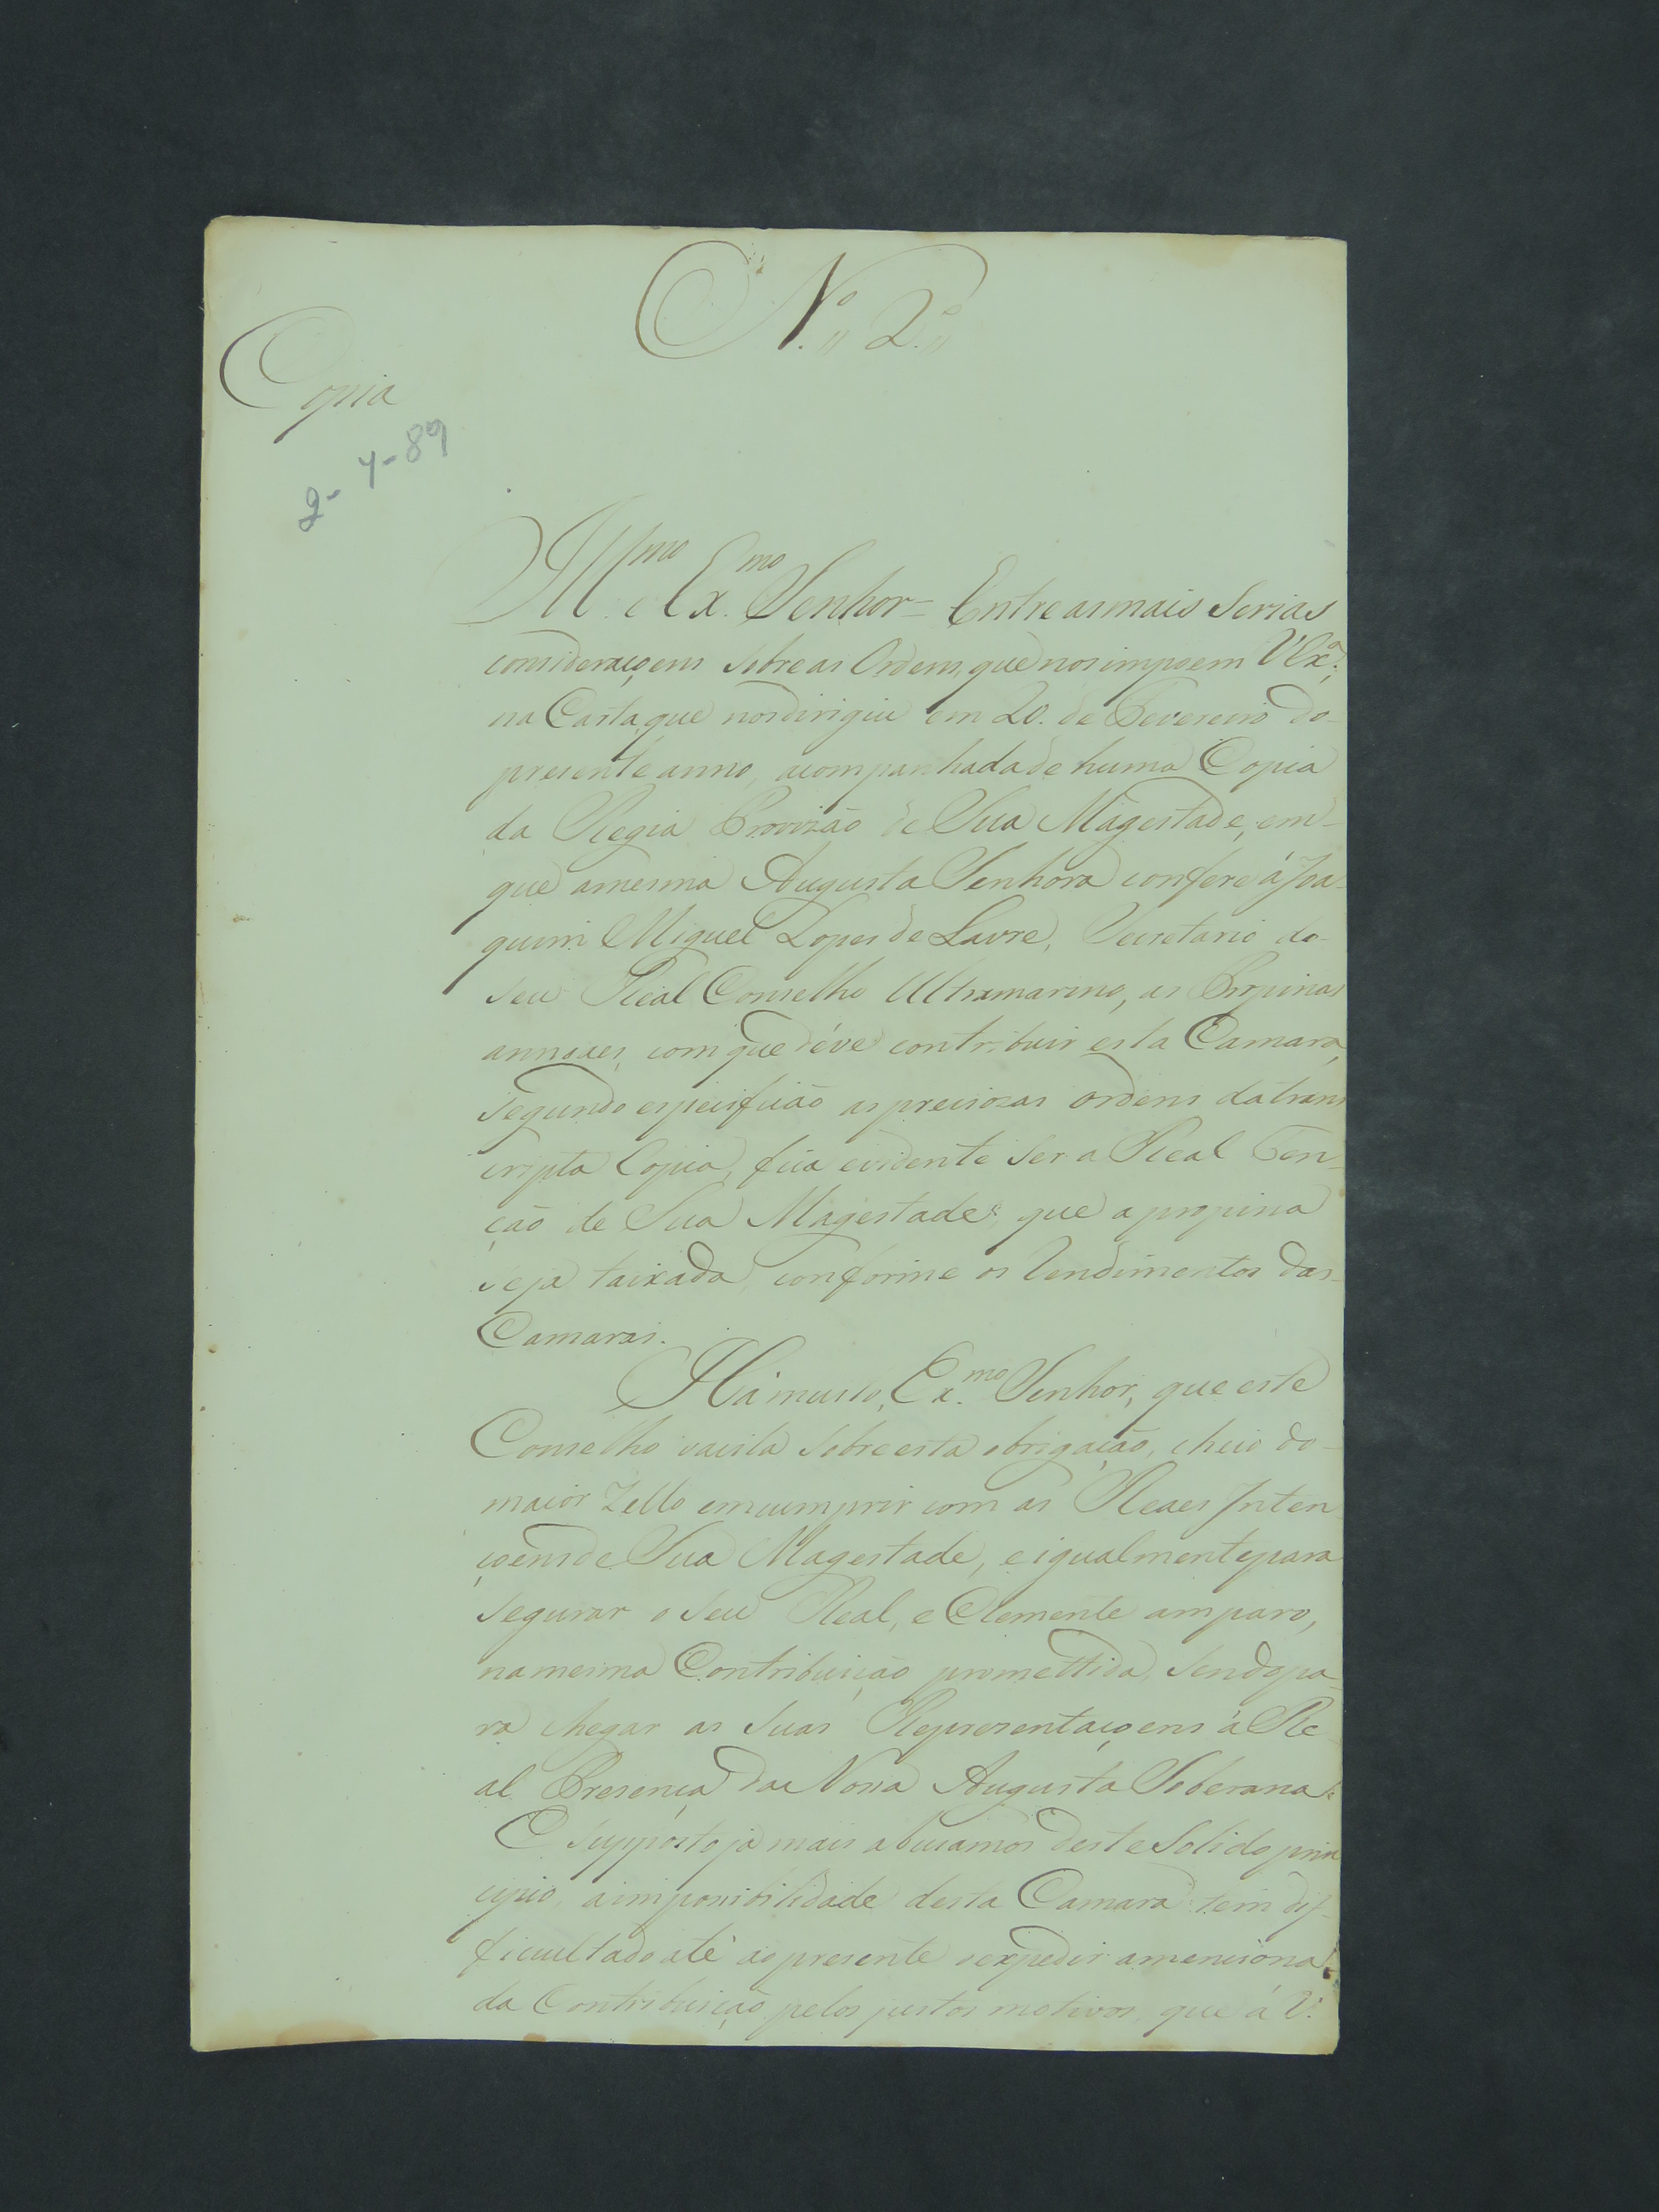 N.º 2.º
Copia
9-4-89
Ill.mo e Ex.mo Senhor = Entre as mais serias
consideraçoens sobre as Ordens, que nos impoem V. Ex.ª
na Carta, que nos dirigiu em 20. de Fevereiro do
prezente anno, acompanhada de huma Copia
da Regia Provizão de Sua Magestade, em-
que a mesma Augusta Senhora confere á Joa-
quim Miguel Lopes de Lavre, Secretario do
seu Real Conselho Ultramarino, as Propinas
annoaes, com que déve contribuir esta Camara,
segundo especificão as preciozas ordens da trans
cripta Copia, fica evidente ser a Real Ten-
ção de Sua Magestade, que a propina
seja taixada, conforme os Rendimentos das
Camaras.
Há muito, Ex.mo Senhor, que este
Conselho vacila sobre esta obrigação, cheio do
maior Zello em cumprir com as Reaes Inten
çoens de Sua Magestade, e igualmente para
segurar o seu Real, e Clemente amparo,
na mesma Contribuição promettida, sendo pa-
ra chegar as suas Reprezentaçoens á Re
al Presença da Nossa Augusta Soberana:
E supposto já mais abuzamos deste solido prin
cipio, a impossibilidade desta Camara tem dif-
ficultado até ao prezente o expedir a menciona-
da Contribuição pelos justos motivos, que á V.